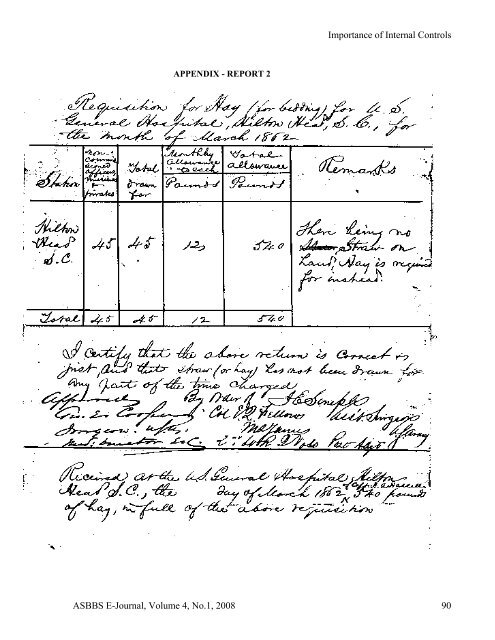 Importance of Internal Controls
APPENDIX - REPORT 2
Requisition for Hay (for bedding) for U.S.
General Hospital, Hilton Head, S.C., for
the month of March 1862
Station
Non-Commissioned officers & privates
Total drawn for
Monthly allowance to each Pounds
Total allowance Pounds
Remarks
Hilton Head S.C.
45
45
12
540
There being no
Straw on
hand, Hay is required
for instead.
Total 45 45 12 540
I certify that the above return is correct &
just and that straw (or hay) has not been drawn for
any part of the time charged
Approved By Order of
Col
Received at the U.S. General Hospital, Hilton
Head S.C., the day of March 1862 540 pounds
of hay, in full of the above requisition
ASBBS E-Journal, Volume 4, No.1, 2008 90